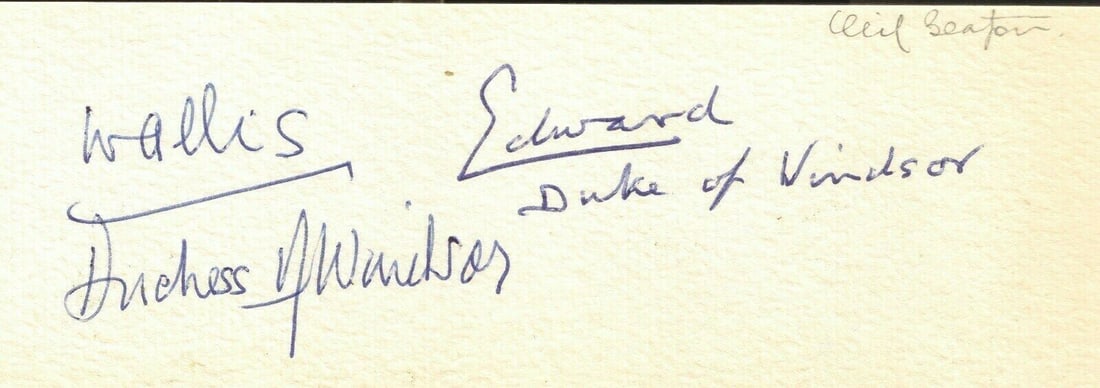 Cecil Beaton.
Wallis
Duchess of Windsor
Edward
Duke of Windsor